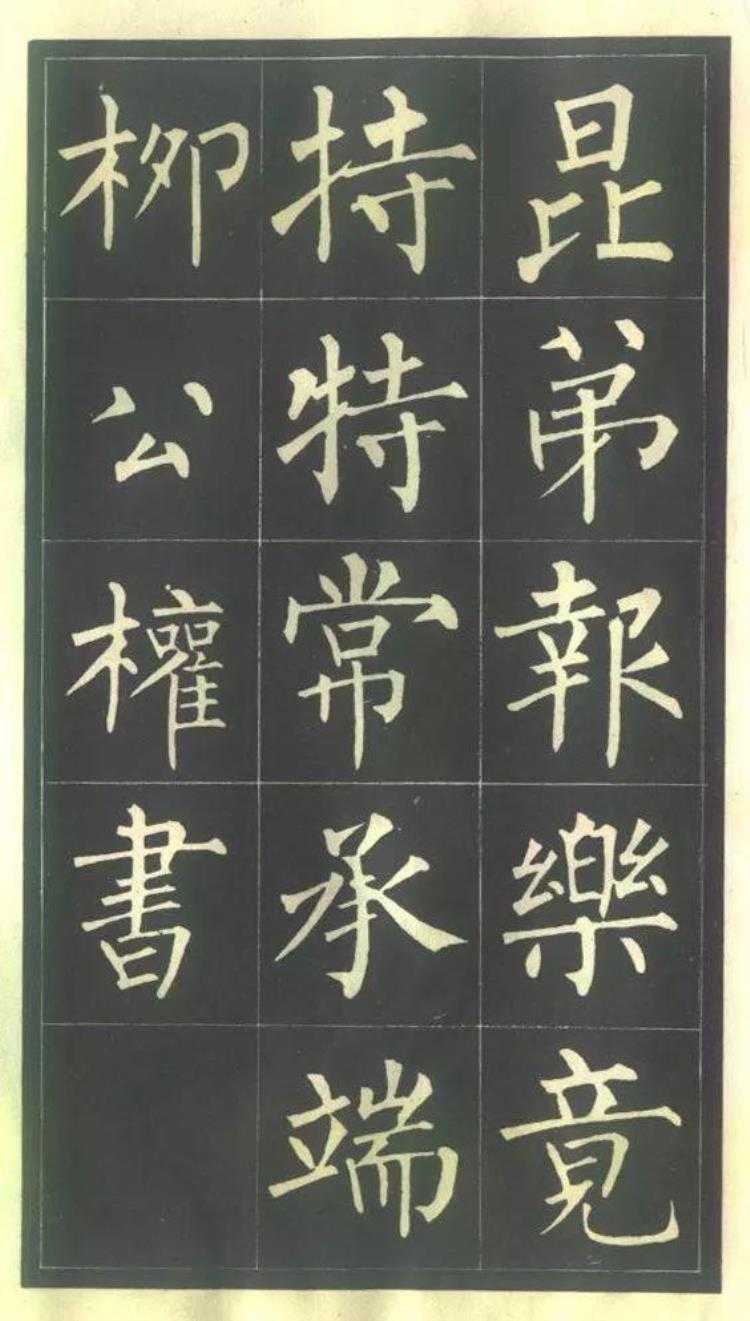 昆弟報樂竟
持特常承端
柳公權書